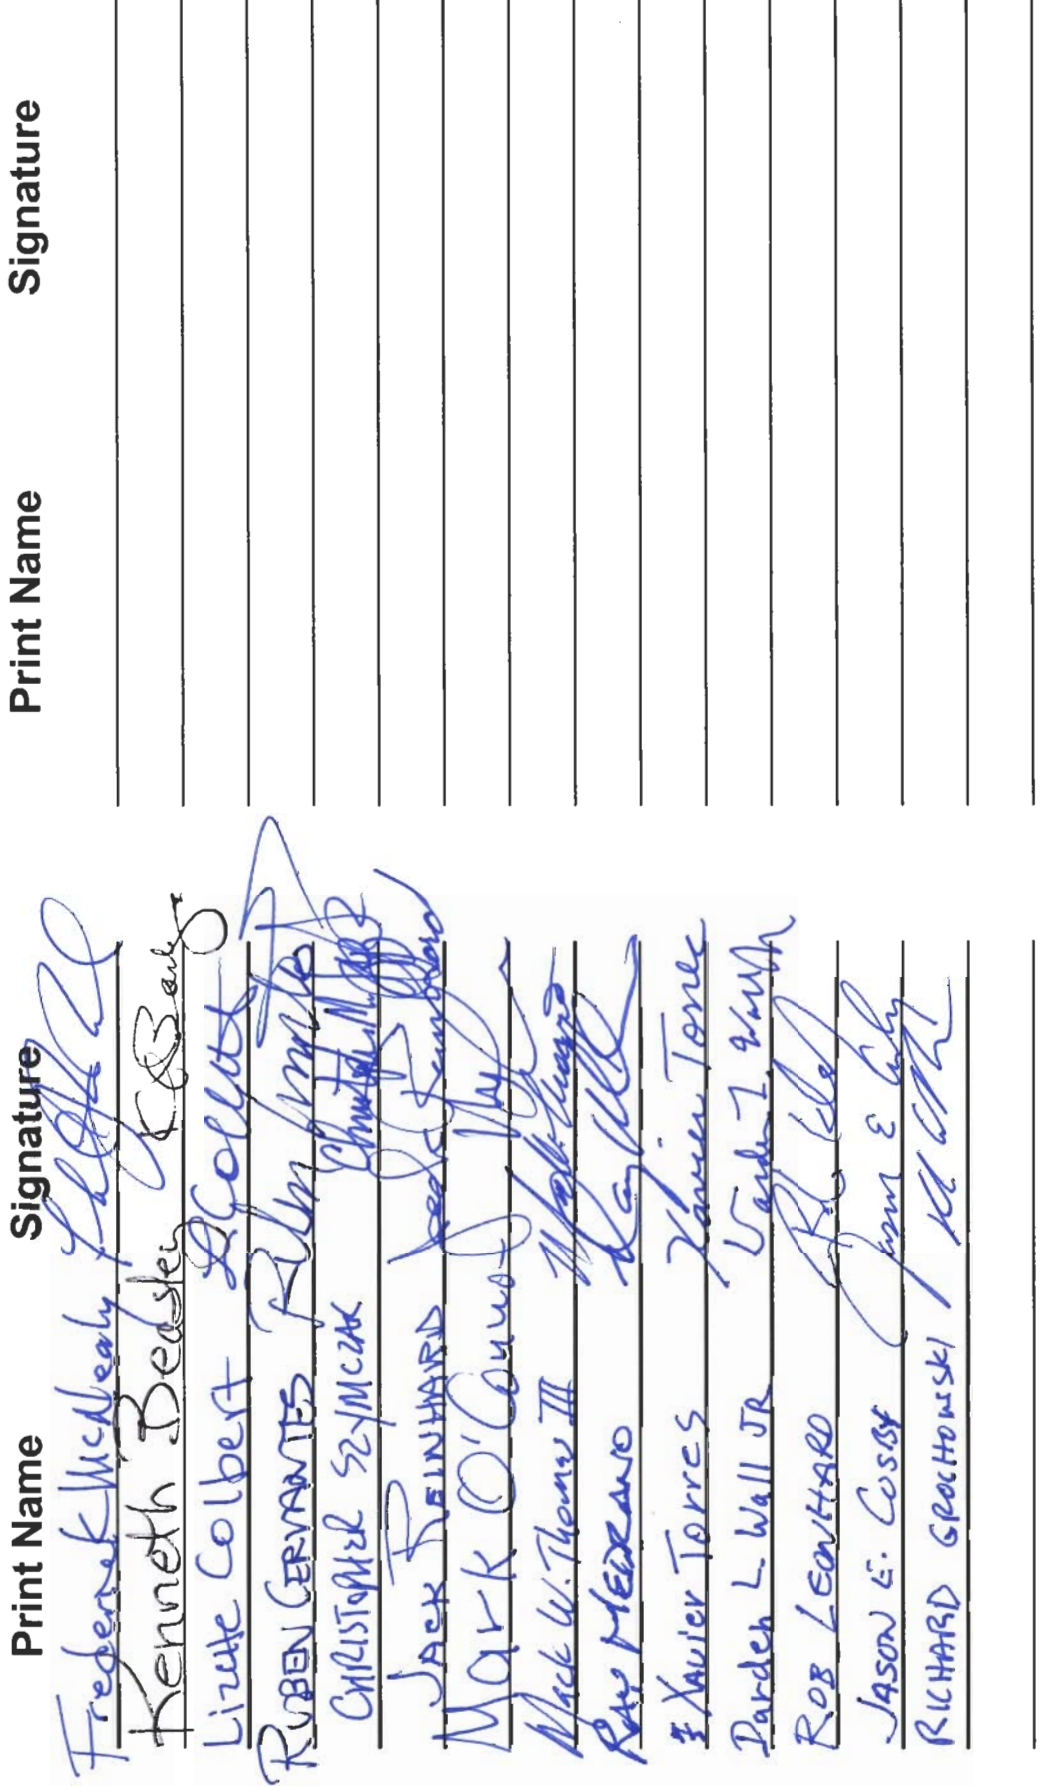 Print Name Signature Print Name Signature
Frederick McNealy
Kenneth Beasley KBeasley
Lizette Colbert LColbert
RUBEN CERVANTES
CHRISTOPHER SZYMCZAK
JACK REINHARD
Mark O'Connor
Mack W. Thomas III
Ray MEDRANO
Xavier Torres Xavier Torres
Darden L. Wall JR
ROB LEONHARD
JASON E. COSBY Jason E Cosby
RICHARD GROCHOWSKI